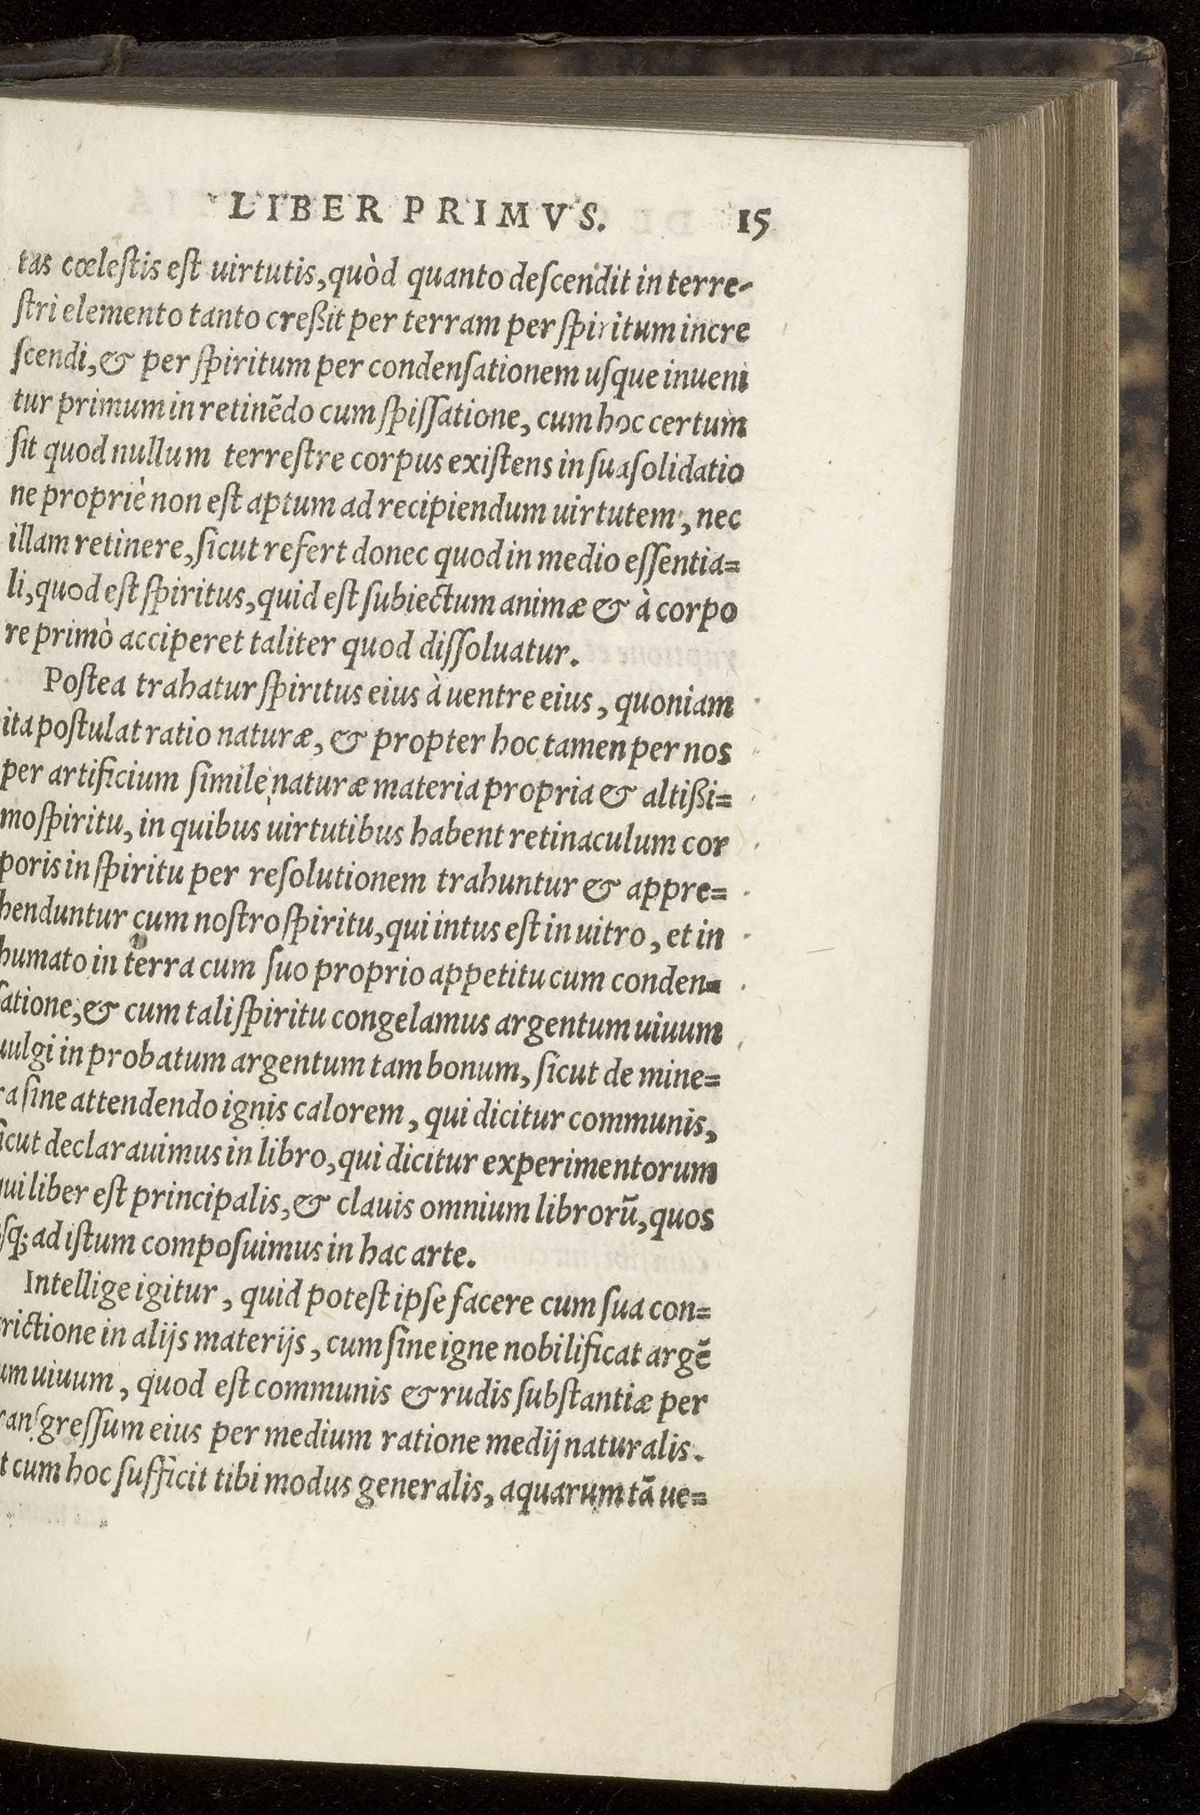 LIBER PRIMVS. 15
tas cœleſtis eſt uirtutis, quòd quanto deſcendit in terre-
ſtri elemento tanto creßit per terram per ſpiritum incre
ſcendi, & per ſpiritum per condenſationem uſque inueni
tur primum in retinẽdo cum ſpiſſatione, cum hoc certum
ſit quod nullum terreſtre corpus exiſtens in ſua ſolidatio
ne propriè non eſt aptum ad recipiendum uirtutem, nec
illam retinere, ſicut refert donec quod in medio eſſentia=
li, quod eſt ſpiritus, quid eſt ſubiectum animæ & à corpo
re primò acciperet taliter quod diſſoluatur.
Poſtea trahatur ſpiritus eius à uentre eius, quoniam
ita poſtulat ratio naturæ, & propter hoc tamen per nos
per artificium ſimile naturæ materia propria & altißi=
mo ſpiritu, in quibus uirtutibus habent retinaculum cor
poris in ſpiritu per reſolutionem trahuntur & appre=
henduntur cum noſtro ſpiritu, qui intus eſt in uitro, et in
humato in terra cum ſuo proprio appetitu cum conden=
ſatione, & cum tali ſpiritu congelamus argentum uiuum
uulgi in probatum argentum tam bonum, ſicut de mine=
ra ſine attendendo ignis calorem, qui dicitur communis,
ſicut declarauimus in libro, qui dicitur experimentorum
qui liber eſt principalis, & clauis omnium librorũ, quos
uſq; ad iſtum compoſuimus in hac arte.
Intellige igitur, quid poteſt ipſe facere cum ſua con=
rictione in alijs materijs, cum ſine igne nobilificat argẽ
um uiuum, quod eſt communis & rudis ſubſtantiæ per
ranſgreſſum eius per medium ratione medij naturalis.
t cum hoc ſufficit tibi modus generalis, aquarum tã ue=